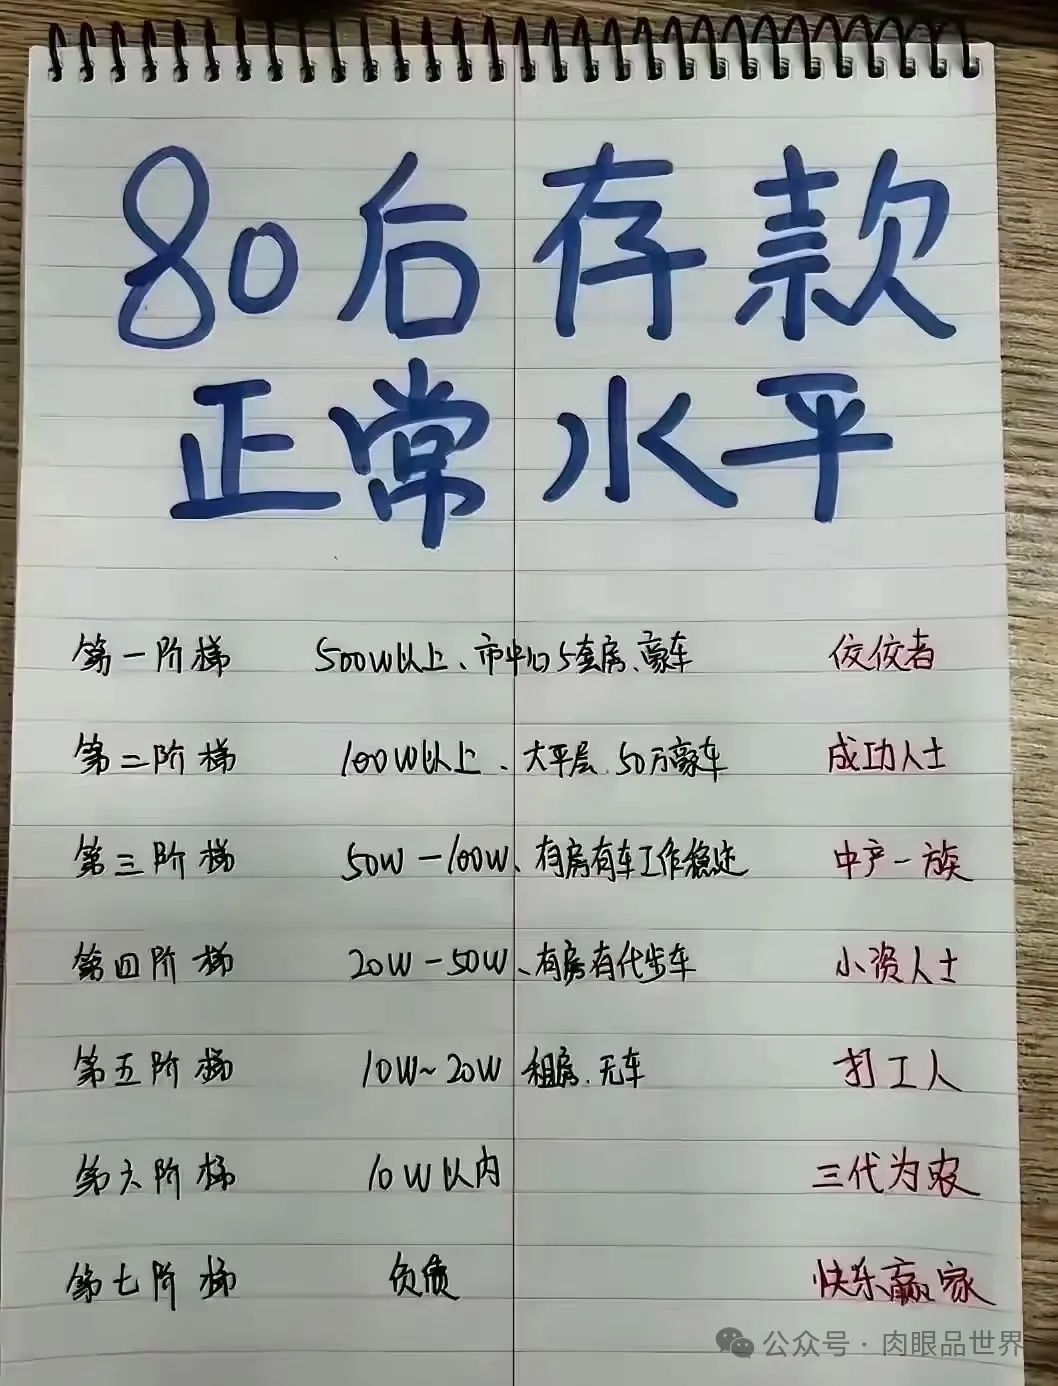 80后存款
正常水平
第一阶梯 500W以上、市中心5套房、豪车 佼佼者
第二阶梯 100W以上、大平层、50万豪车 成功人士
第三阶梯 50W-100W、有房有车工作稳定 中产一族
第四阶梯 20W-50W、有房有代步车 小资人士
第五阶梯 10W~20W 租房、无车 打工人
第六阶梯 10W以内 三代为农
第七阶梯 负债 快乐赢家
公众号·肉眼品世界